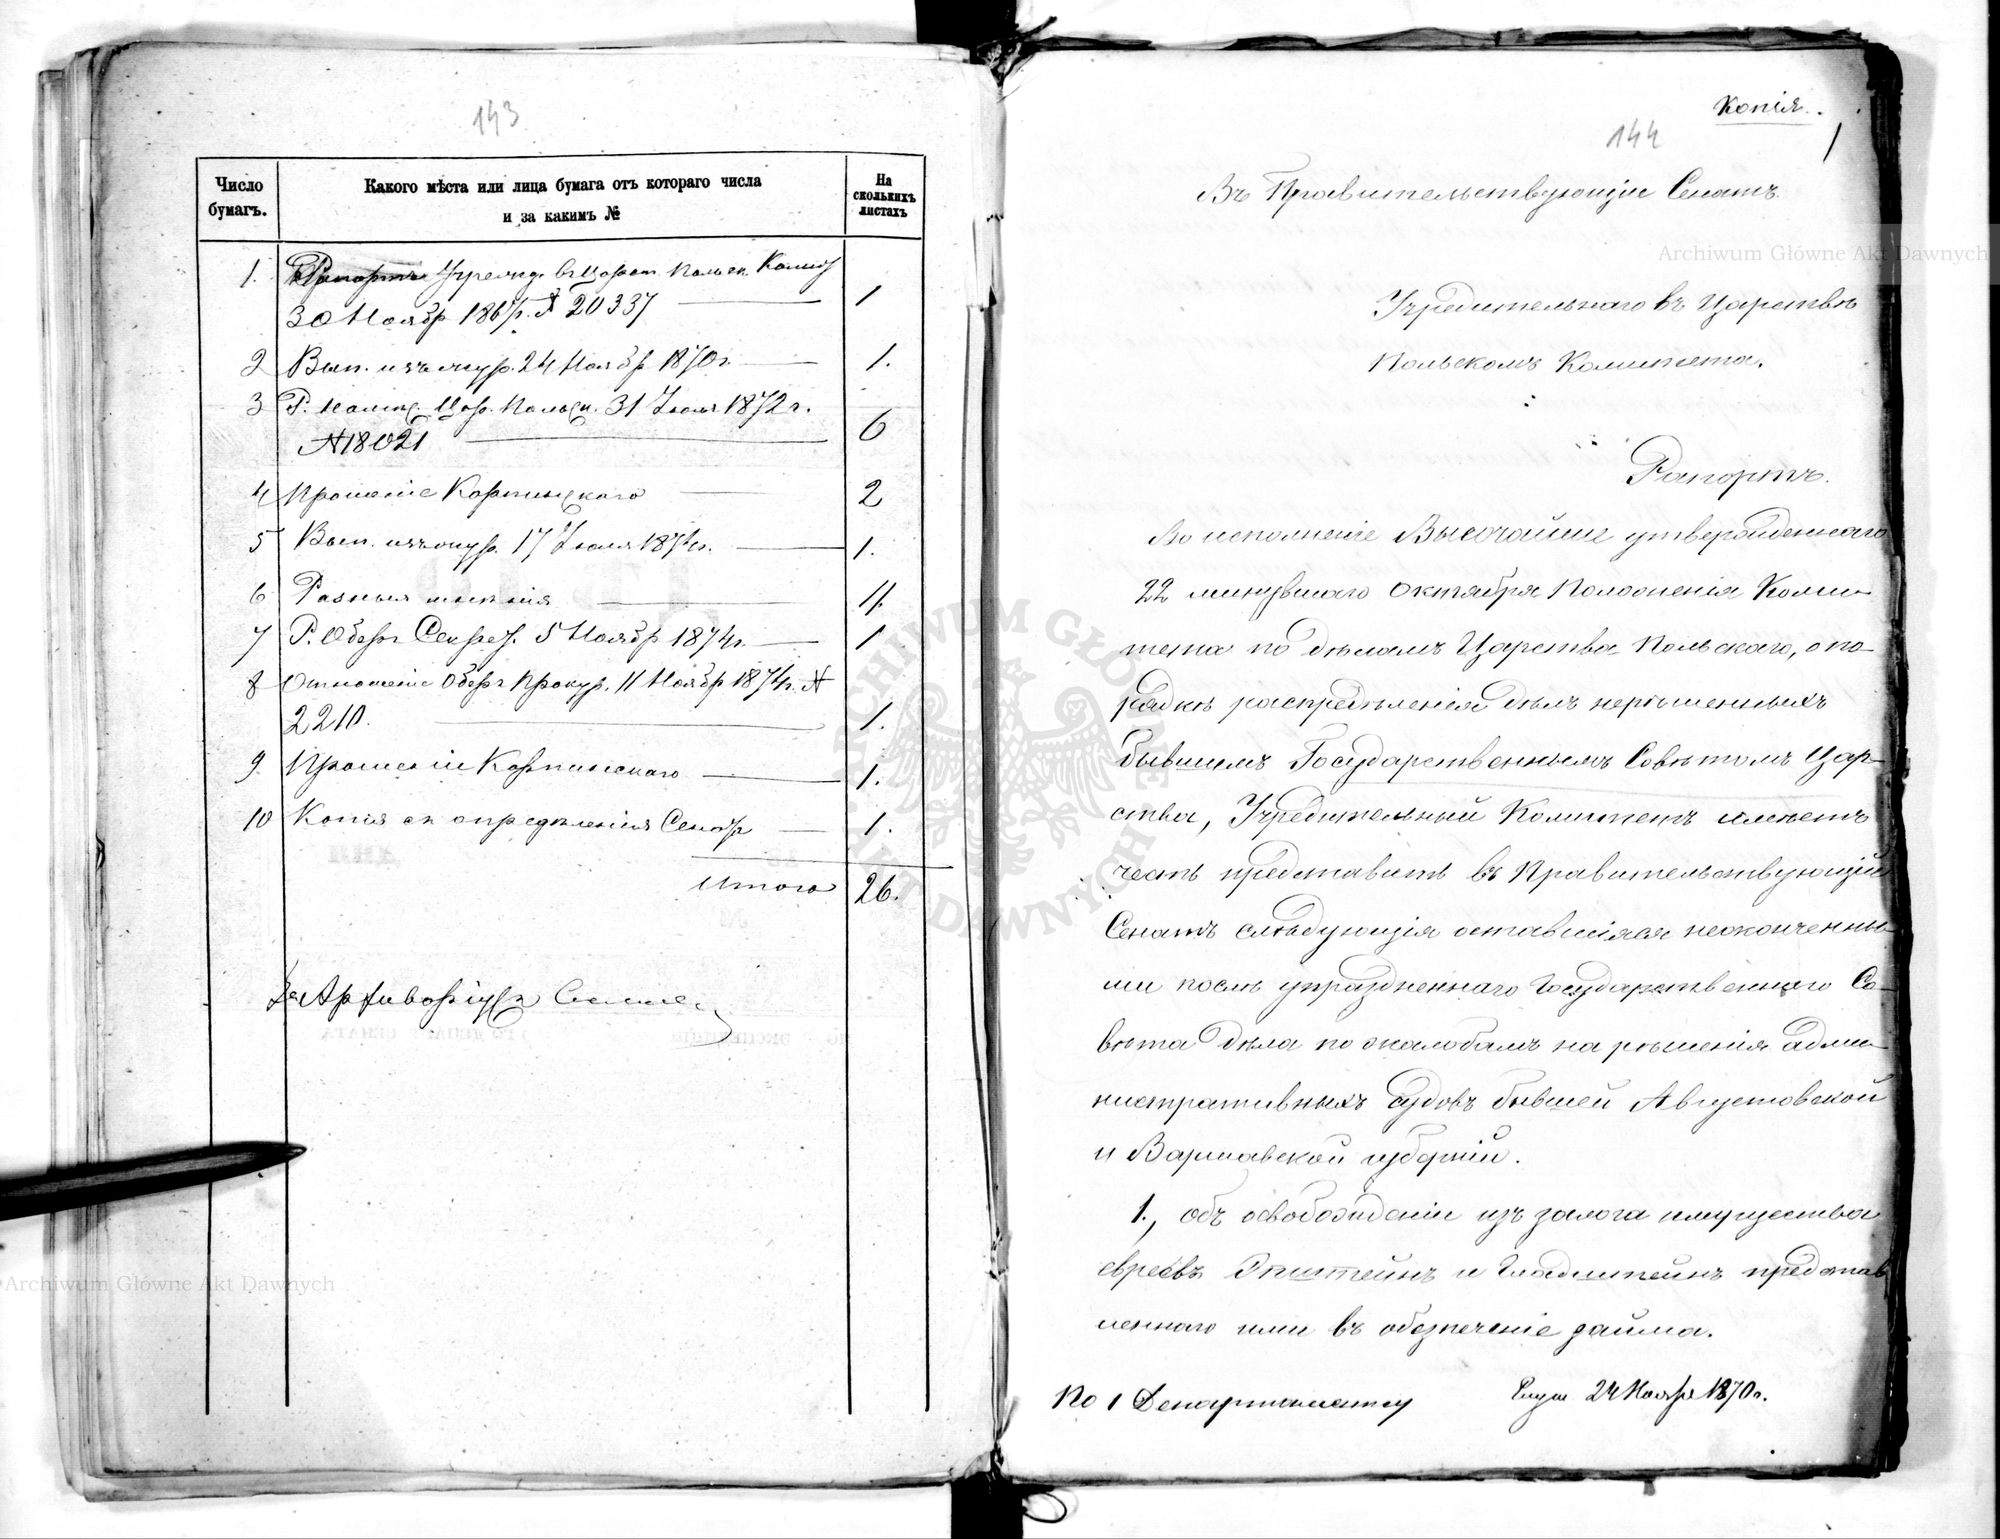 143
Число бумагъ.
Какого мѣста или лица бумага отъ котораго числа
и за какимъ №
На сколькихъ листахъ
1. Рапортъ Учрежд. въ Царст. Польск. Комит
30 Ноябр 1867г. № 20337 — 1
2 Вып. изъ жур. 24 Ноябр 1870г. — 1.
3 Р. Комит. Цар. Польск. 31 Июля 1872 г.
№ 18021 — 6
4 Прошеніе Карпинскаго — 2
5 Вып. изъ жур. 17 Июля 1874г. — 1.
6 Разныя — 11.
7 Р. Оберъ Секрет. 5 Ноябр 1874г. — 1
8 Отношеніе Оберъ Прокур. 11 Ноябр 1874г. №
2210. — 1.
9. Прошеніе Карпинскаго — 1.
10 Копія съ опредѣленія Сенат — 1.
Итого 26.
За Архиваріуса
Копія.
144
1
Въ Правительствующій Сенатъ.
Учредительнаго въ Царствѣ
Польскомъ Комитета.
Рапортъ.
Во исполненіе Высочайше утвержденнаго
22 минувшаго Октября Положенія Коми-
тета по дѣламъ Царства Польскаго, о по-
рядкѣ распредѣленія дѣлъ нерѣшенныхъ
бывшимъ Государственнымъ Совѣтомъ Цар-
ства, Учредительный Комитетъ имѣетъ
честь представить въ Правительствующій
Сенатъ слѣдующія оставшіяся неоконченны-
ми послѣ упраздненнаго Государственнаго Со-
вѣта дѣла по жалобамъ на рѣшенія адми-
нистративныхъ судовъ бывшей Августовской
и Варшавской губерній.
1., объ освобожденіи изъ залога имущества
евреевъ Эпштейнъ и Гладштейнъ представ
леннаго ими въ обезпеченіе займа.
По 1 Департаменту
24 Ноября 1870г.